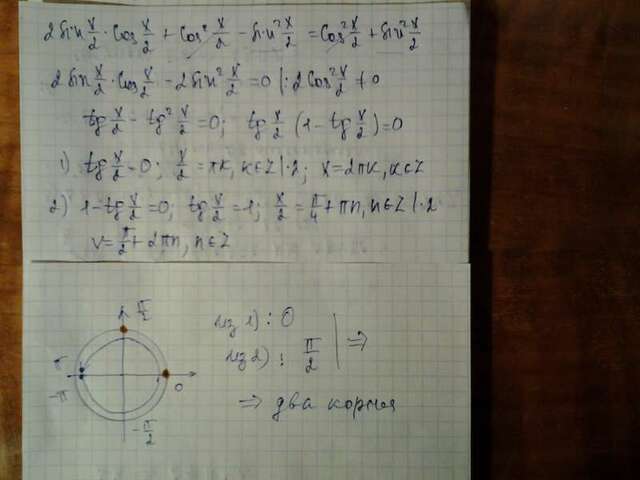 2 sin x/2 · cos x/2 + cos² x/2 - sin² x/2 = cos² x/2 + sin² x/2
2 sin x/2 · cos x/2 - 2 sin² x/2 = 0 | : 2cos² x/2 ≠ 0
tg x/2 - tg² x/2 = 0; tg x/2 (1 - tg x/2) = 0
1) tg x/2 = 0; x/2 = πк, к∈Z | ·2; x = 2πк, к∈Z
2) 1 - tg x/2 = 0; tg x/2 = 1; x/2 = π/4 + πn, n∈Z | ·2
x = π/2 + 2πn, n∈Z
π/2
из 1): 0
π
из 2): π/2 | ⇒
-π
0
⇒ два корня
-π/2